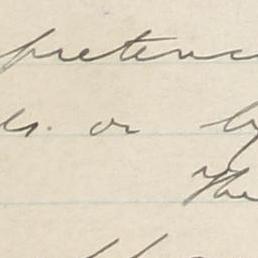 pretenc
ds. or by
The